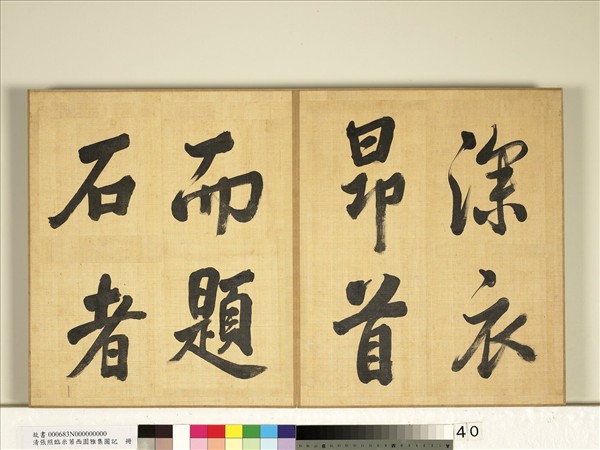 深衣
昻首
而題
石者
故書 000683N000000000
清張照臨米芾西園雅集圖記 冊
40